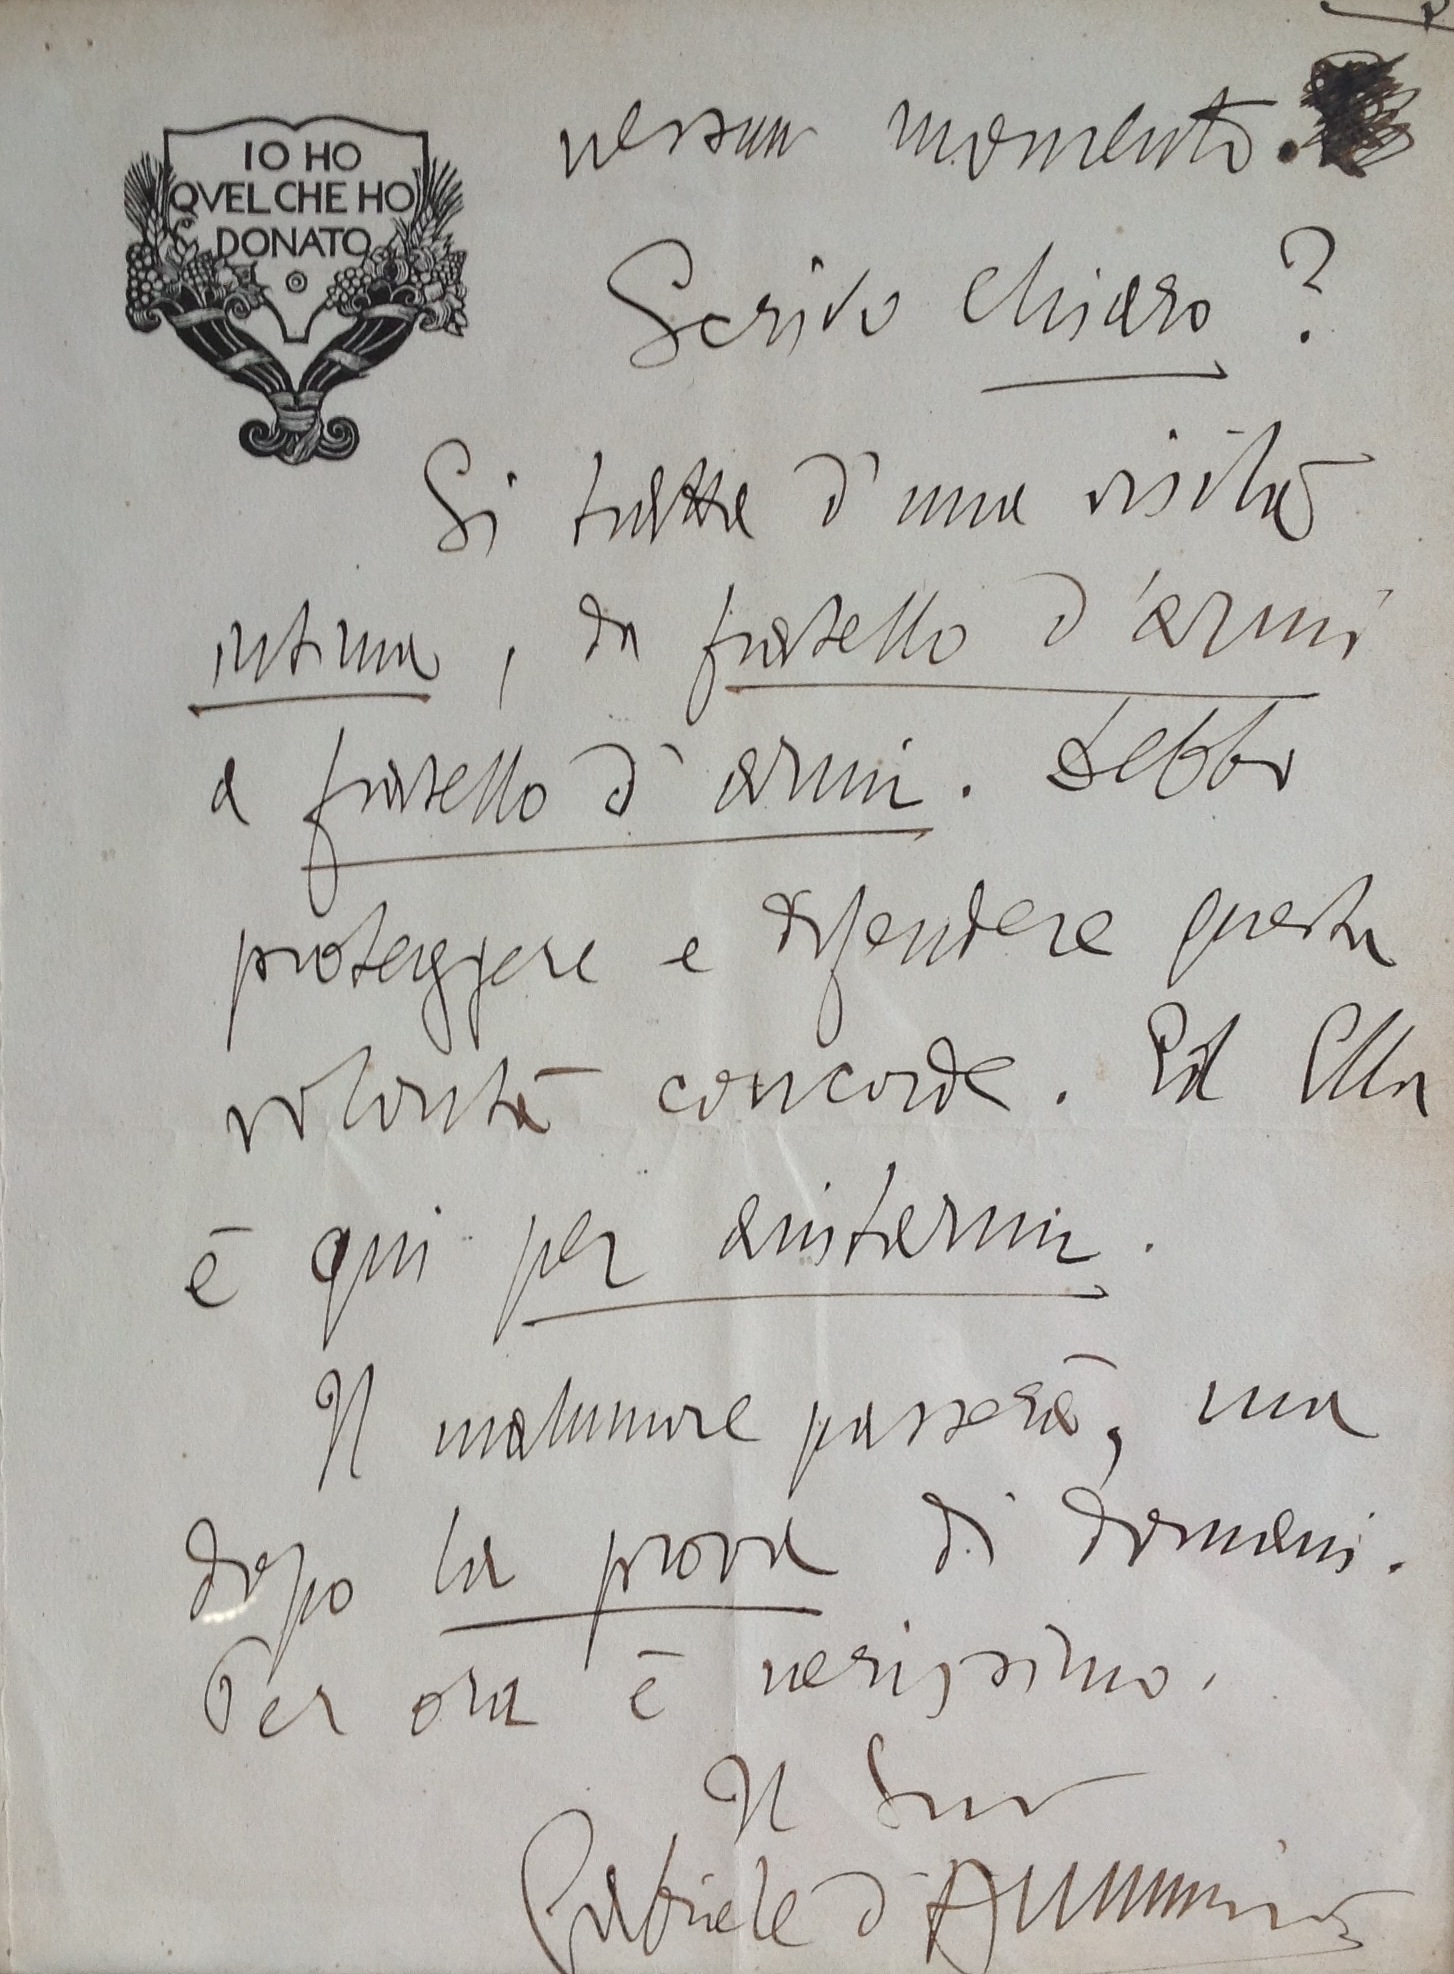 IO HO
QVEL CHE HO
DONATO
nessun momento.
Scrivo chiaro ?
Si tratta d'una visita
intima, da fratello d'armi
a fratello d'armi. Debbo
proteggere e difendere questa
volontà concorde. Ed Ella
è qui per aiutarmi.
Il malumore passerà, ma
dopo la prova di domani.
Per ora è nerissimo.
Il Suo
Gabriele d'Annunzio